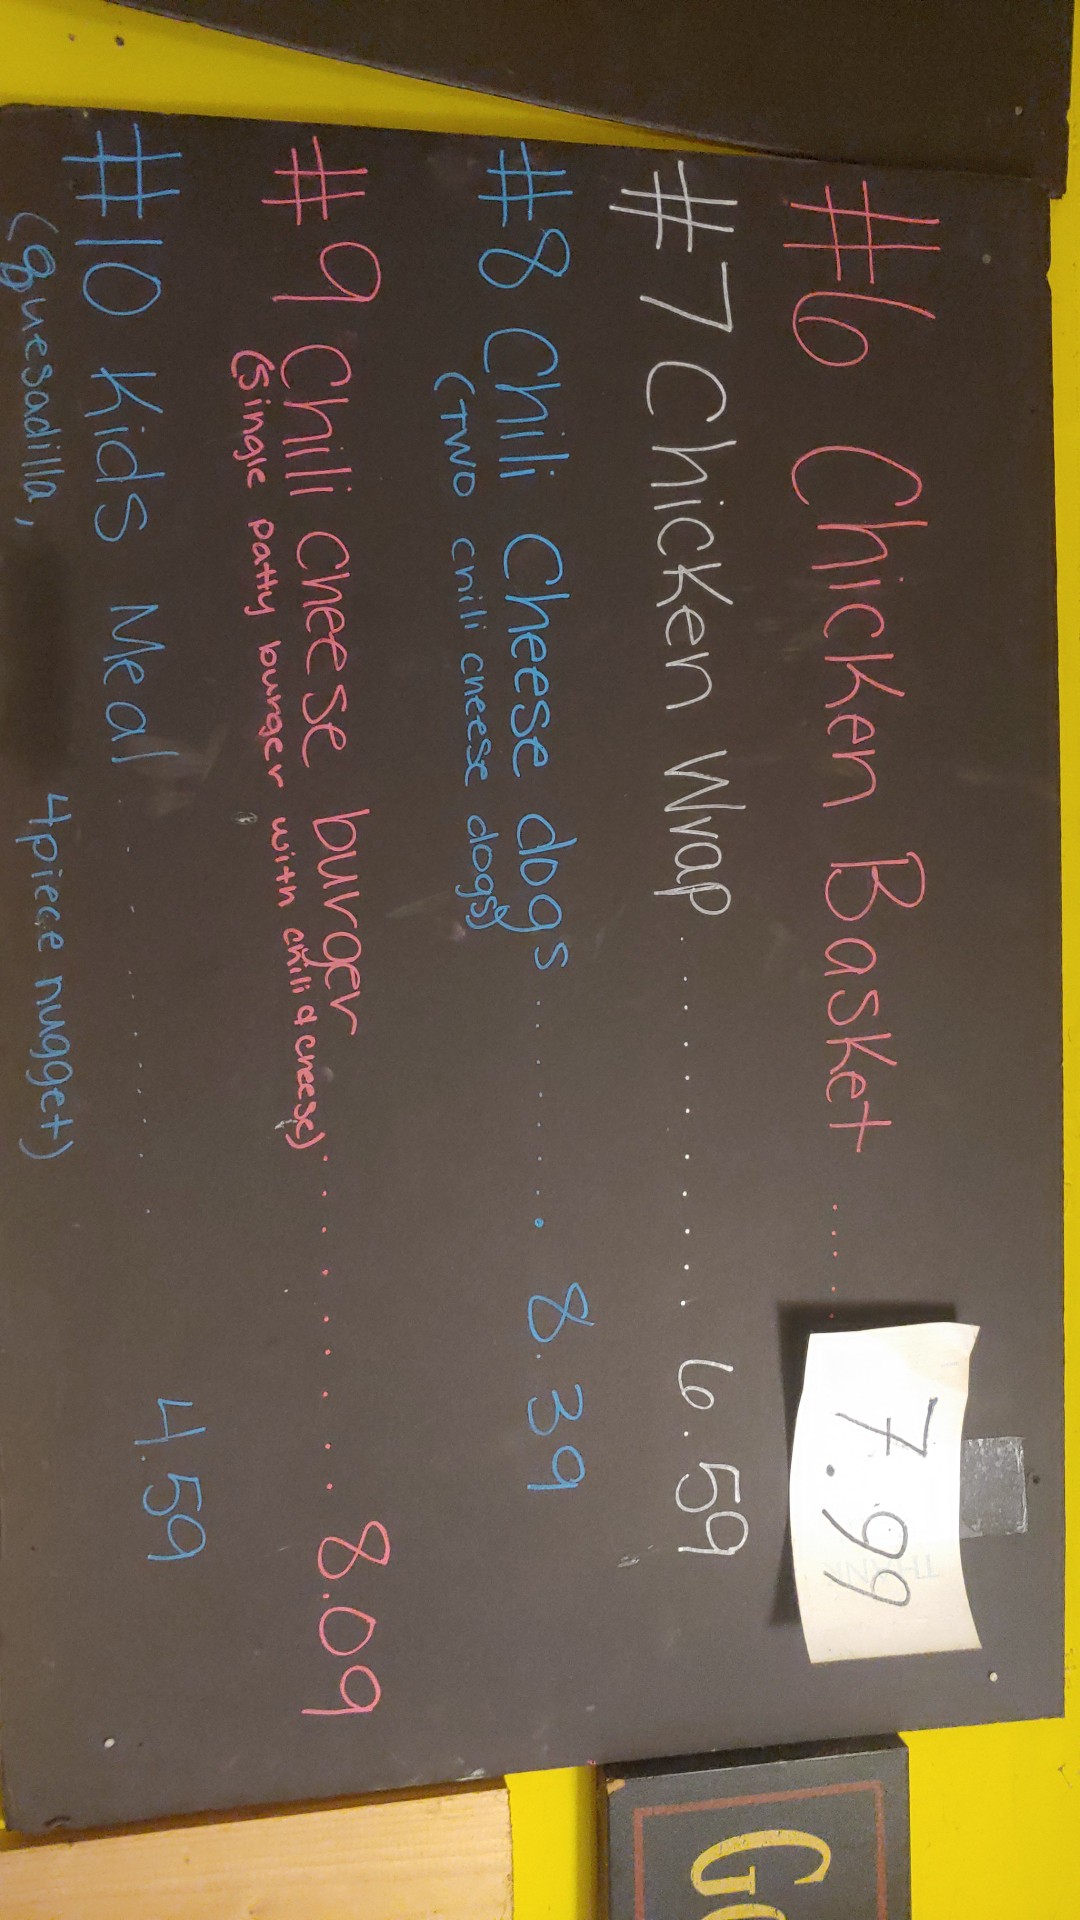 #6 Chicken Basket ..... 7.99
#7 Chicken Wrap .......... 6.59
#8 Chili Cheese dogs ...... 8.39
(Two chili cheese dogs)
#9 Chili cheese burger ......... 8.09
(Single patty burger with chili & cheese)
#10 Kids Meal ........ 4.59
(quesadilla, 4 piece nugget)
THANK